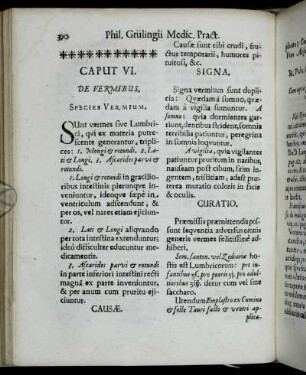 390 Phil. Grülingii Medic. Pract.
CAPUT VI.
DE VERMIBUS,
SPECIES VERMIUM.
SUnt vermes sive Lumbri-
ci, qvi ex materia putre-
scente generantur, tripli-
ces: 1. Longi & rotundi. 2. La-
ti & Longi. 3. Ascarides parvi &
rotundi.
1. Longi & rotundi in gracilio-
ribus intestinis plerunqve in-
veniuntur, ideoqve sæpè in
ventriculum adscendunt, &
per os, vel nares etiam ejiciun-
tur.
2. Lati & Longi aliqvando
per tota intestina extenduntur:
ideò difficulter educuntur me-
dicamentis.
3. Ascarides parvi & rotundi
in parte inferiori intestini recti
magnâ ex parte inveniuntur,
& per anum cum pruritu eji-
ciuntur.
CAUSÆ.
Causæ sunt cibi crudi, fru-
ctus temporarii, humores pi-
tuitosi, &c.
SIGNA.
Signa vermium sunt dupli-
cia: Qvædam à somno, qvæ-
dam à vigilia sumuntur. A
somno, qvia dormientes gar-
riunt, dentibus strident, somnia
terribilia patiuntur, peregrina
in somnis loqvuntur.
A vigilia, qvia vigilantes
patiuntur pruritum in naribus,
nauseam post cibum, sitim in-
gentem, tristitiam, adest pu-
erorea mutatio coloris in faci-
e & oculis.
CURATIO.
Præmissis præmittenda pos-
sunt seqventia adversus omnis
generis vermes felicissimè ad-
hiberi.
Sem. santon. vel Zedoariæ ho-
stis est Lumbricorum:
cum vel sine
saccharo.
Utendum Emplastro ex Cumino
& felle Tauri fallo & ventri ap-
plica-